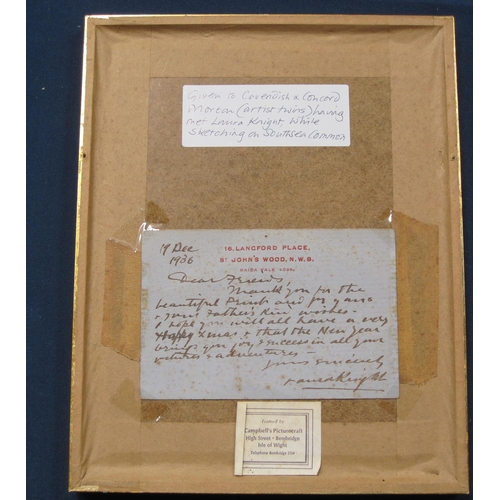 Given to Cavendish & Concord
Morton (artist twins) having
met Laura Knight while
sketching on Southsea Common
19 Dec
1936
16, LANGFORD PLACE,
ST JOHN'S WOOD, N.W.8.
MAIDA VALE
Dear Friends,
Thank you for the
beautiful Print and for yours
& your Father's kind wishes -
I hope you will all have a very
Happy Xmas & that the New Year
brings you joy & success in all your
& adventures -
yours sincerely
Laura Knight
Framed by
Campbell's Picturecraft
High Street • Bembridge
Isle of Wight
Telephone Bembridge